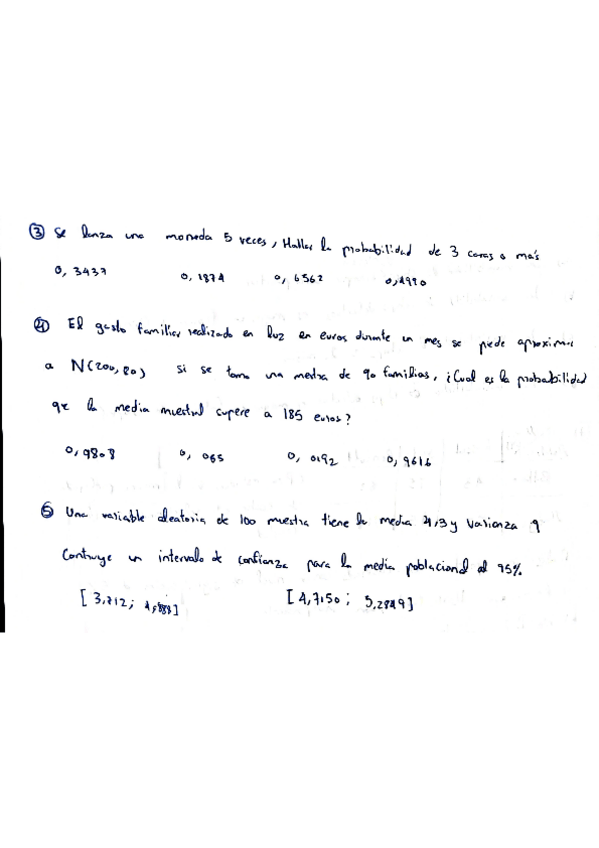 ③ Se lanza una moneda 5 veces, Hallar la probabilidad de 3 caras o más
0,3437 0,1874 0,6562 0,4990
④ El gasto familiar realizado en luz en euros durante un mes se puede aproximar
a N(200,80) si se toma una mestra de 90 familias, ¿Cual es la probabilidad
que la media muestral supere a 185 euros?
0,9808 0,065 0,0192 0,9616
⑤ Una variable aleatoria de 100 muestra tiene la media 4,3 y Varianza 9
Contruye un intervalo de confianza para la media poblacional al 95%.
[3,712; 4,888] [4,7150; 5,2849]